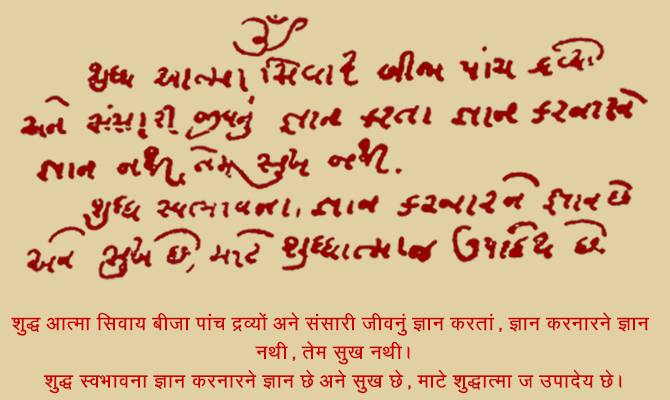 ૐ
શુદ્ધ આત્મા સિવાય બીજા પાંચ દ્રવ્યો
અને સંસારી જીવનું જ્ઞાન કરતા જ્ઞાન કરનારને
જ્ઞાન નથી, તેમ સુખ નથી.
શુદ્ધ સ્વભાવના જ્ઞાન કરનારને જ્ઞાન છે
અને સુખ છે, માટે શુદ્ધાત્મા જ ઉપાદેય છે.
शुद्ध आत्मा सिवाय बीजा पांच द्रव्यों अने संसारी जीवनुं ज्ञान करतां , ज्ञान करनारने ज्ञान
नथी , तेम सुख नथी।
शुद्ध स्वभावना ज्ञान करनारने ज्ञान छे अने सुख छे , माटे शुद्धात्मा ज उपादेय छे।